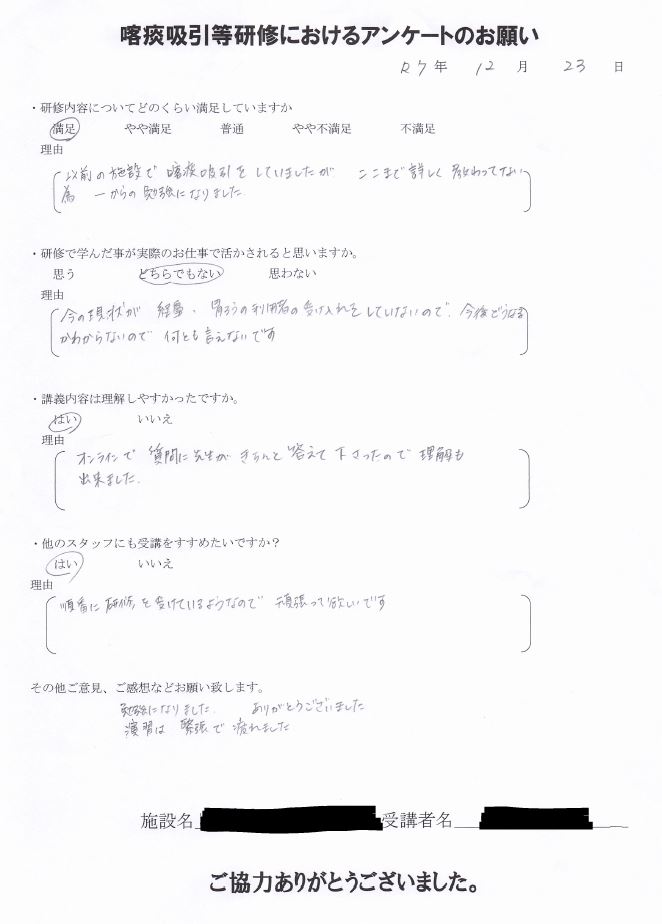 喀痰吸引等研修におけるアンケートのお願い
R7年 12月 23日
・研修内容についてどのくらい満足していますか
満足 やや満足 普通 やや不満足 不満足
理由
以前の施設で喀痰吸引をしていましたが ここまで詳しく教わってない
為 一からの勉強になりました
・研修で学んだ事が実際のお仕事で活かされると思いますか。
思う どちらでもない 思わない
理由
今の現状が 経鼻、胃ろうの利用者の受け入れをしていないので、今後どうなる
かわからないので 何とも言えないです
・講義内容は理解しやすかったですか。
はい いいえ
理由
オンラインで 質問に先生が きちんと答えて下さったので 理解も
出来ました.
・他のスタッフにも受講をすすめたいですか?
はい いいえ
理由
順番に研修を受けているようなので 頑張って欲しいです
その他ご意見、ご感想などお願い致します。
勉強になりました. ありがとうございました
演習は 緊張で疲れました
施設名 受講者名
ご協力ありがとうございました。